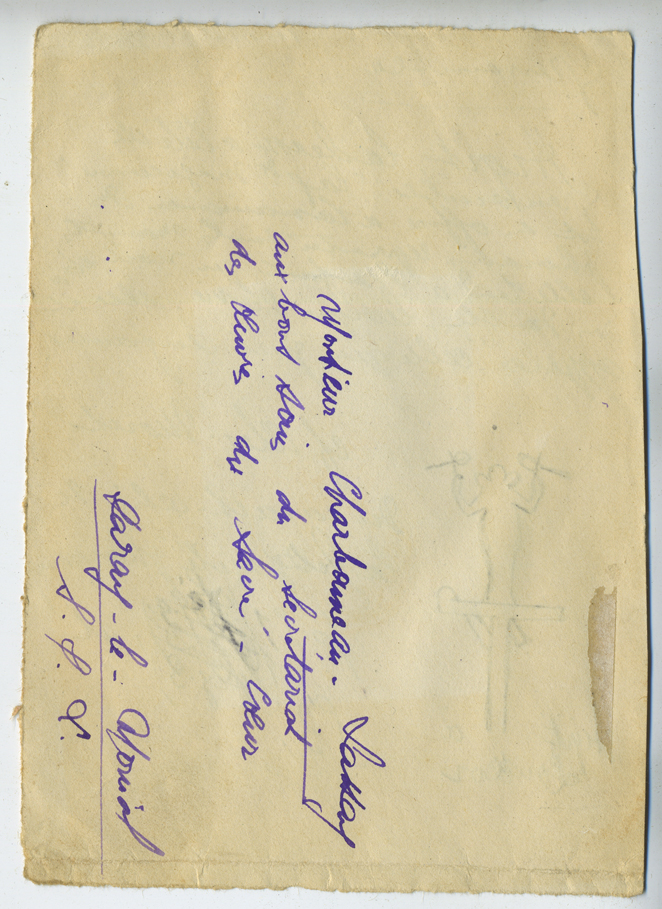 Monsieur Charbonneau-Lassay
aux bons soins du Secrétariat
des Œuvres du Sacré-Cœur
Paray-le-Monial
S. & L.